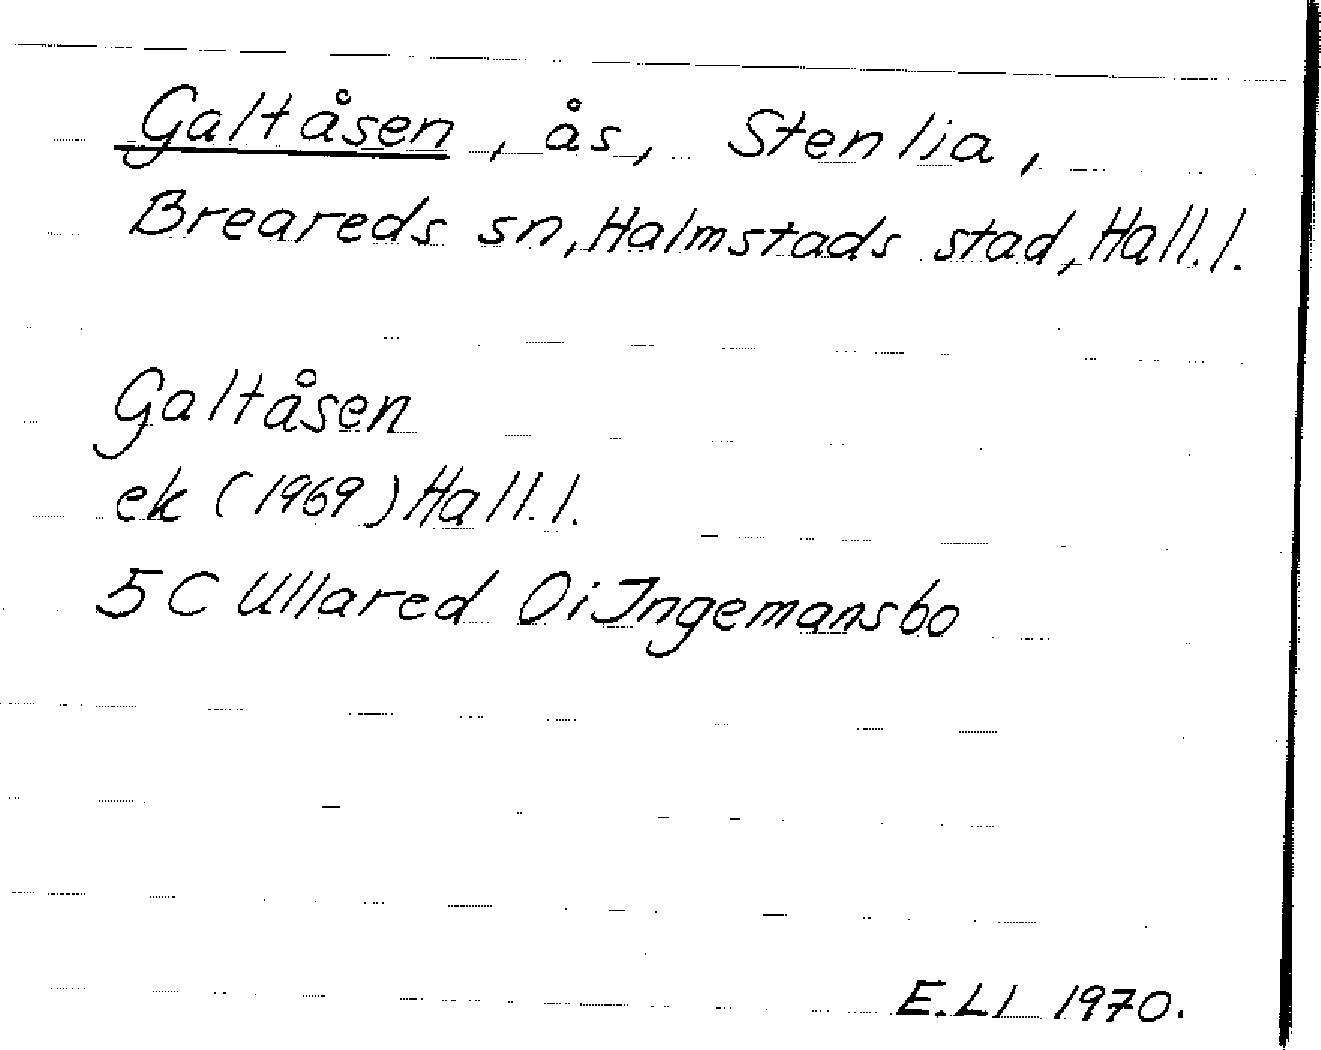 Galtåsen, ås, Stenlia,
Breareds sn, Halmstads stad, Hall.l.
Galtåsen
ek (1969) Hall.l.
5C Ullared Oi Ingemansbo
E.Ll 1970.